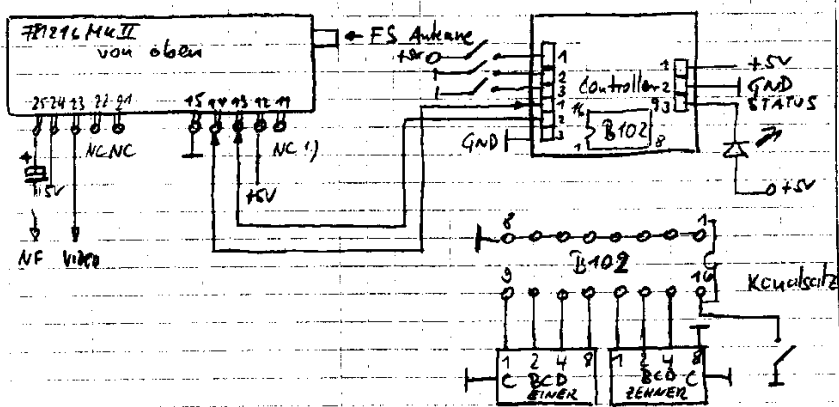 von oben
FS Antenne
25 24 23 22 21
15 14 13 12 11
NC NC
NC 1)
+5V
+5V
NF
Video
1
2
3
1
2
3
GND
Controller
16
B102
1
8
1
2
3
+5V
GND
STATUS
+5V
8
1
B102
9
16
Kanalsatz
1 2 4 8
1 2 4 8
C BCD
EINER
BCD C
ZEHNER